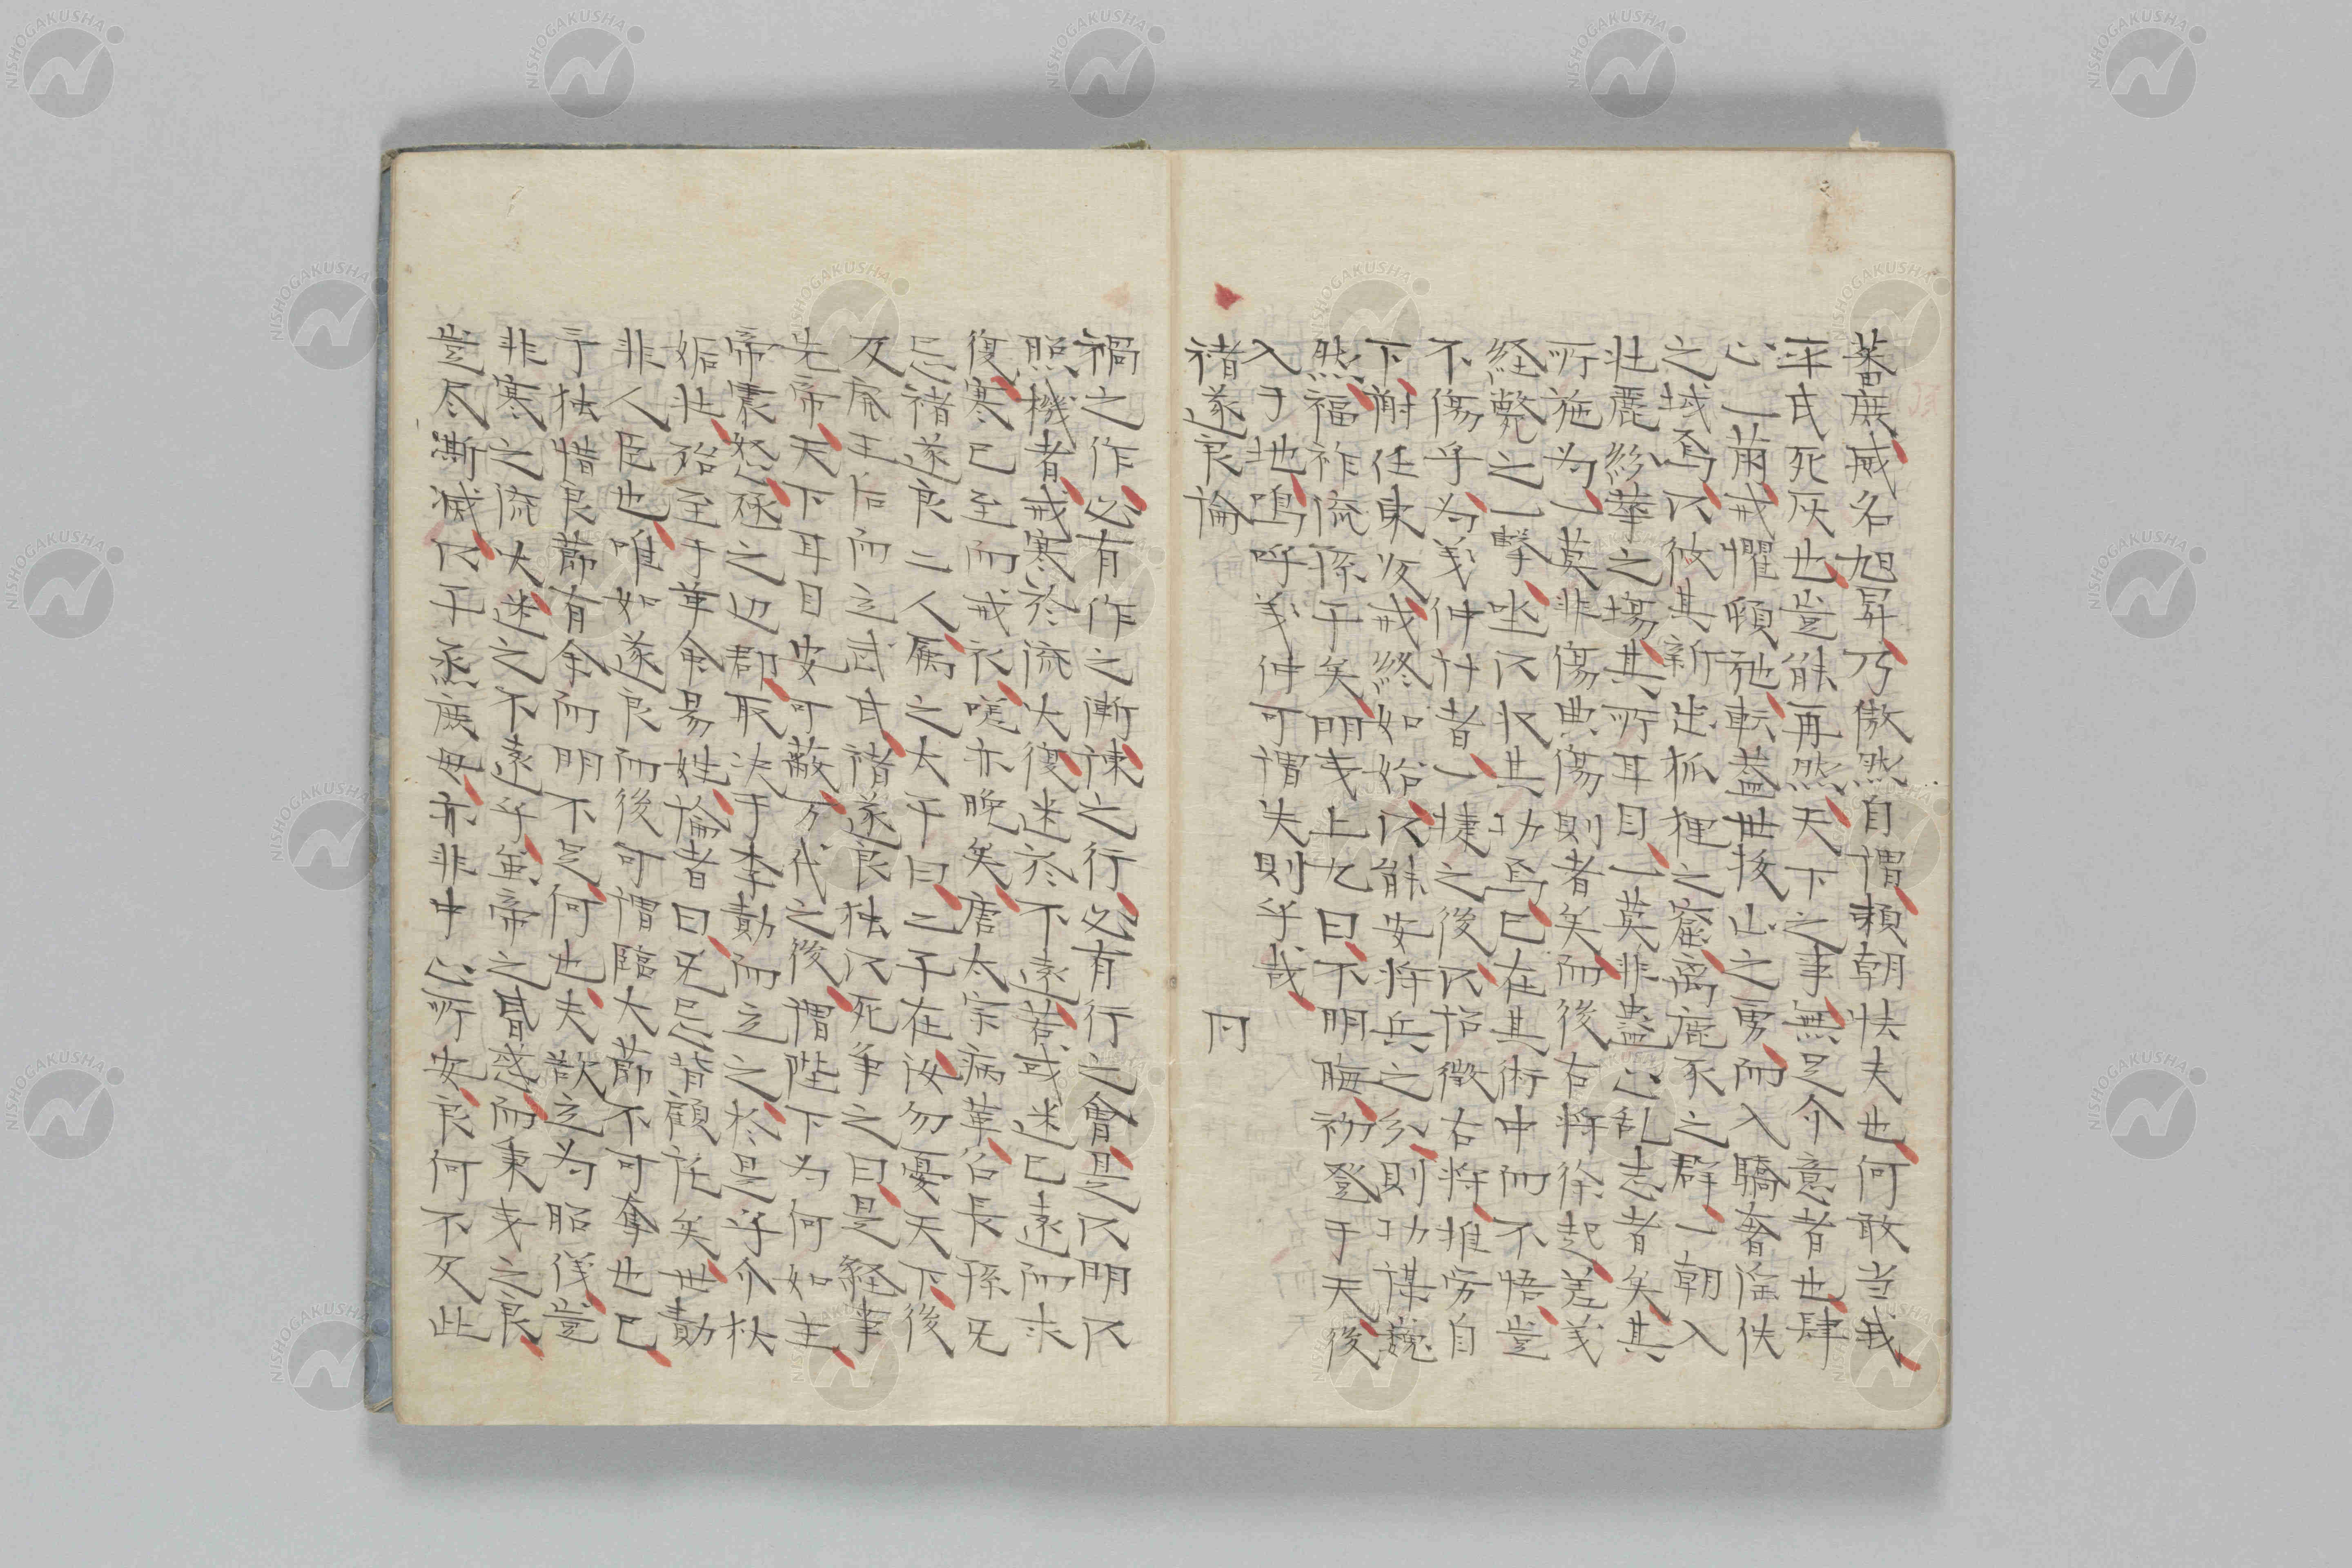 蕃庶威名旭昇乃傲然自謂頼朝怯夫也何敢当我
平氏死灰也豈能再然天下之事無足介意者也肆
心一萠戒懼頓弛転蓋世抜山之勇而入驕奢淫佚
之域焉以彼其新出狐狸之窟离鹿豕之群一朝入
壮麗紛華之場其所耳目一莫非蠱心乱志者矣其
所施為一莫非傷典傷則者矣而後右将徐起差義
経斃之一撃坐以収其功焉已在其術中而不悟豈
不傷乎為義仲計者一捷之後以招徴右将推労自
下謝任東次戒終如始以能安将兵之分則功謀巍
然福祚流孫于矣明夷上九曰不明晦初登于天後
入于地嗚呼義仲可謂失則乎哉
褚遂良論 冋
禍之作必有作之漸諫之行必有行之會是以明以
照機者戒寒於流火復迷於不遠若或迷已遠而求
復寒已至而戒衣嗟亦晩矣唐太宗病革召長孫兄
忌褚遂良二人属之太子曰二子在汝勿憂天下後
及廃王后而立武氏褚遂良独以死争之曰是経事
先帝天下耳目安可蔽万代之後謂陛下為何如主
帝震怒逐之辺郡取决于李勣而立之於是乎介秋
姤壮殆至于革命易姓論者曰兄忌背顧託矣世勣
非人臣也唯如遂良而後可謂臨大節不可奪也已
予独惜良節有余而明不足何也夫欲立為昭儀豈
非寒之流火迷之不遠乎虽帝之昏惑而秉夷之良
豈尽澌滅以于烝庶母亦非中心所安良何不及此